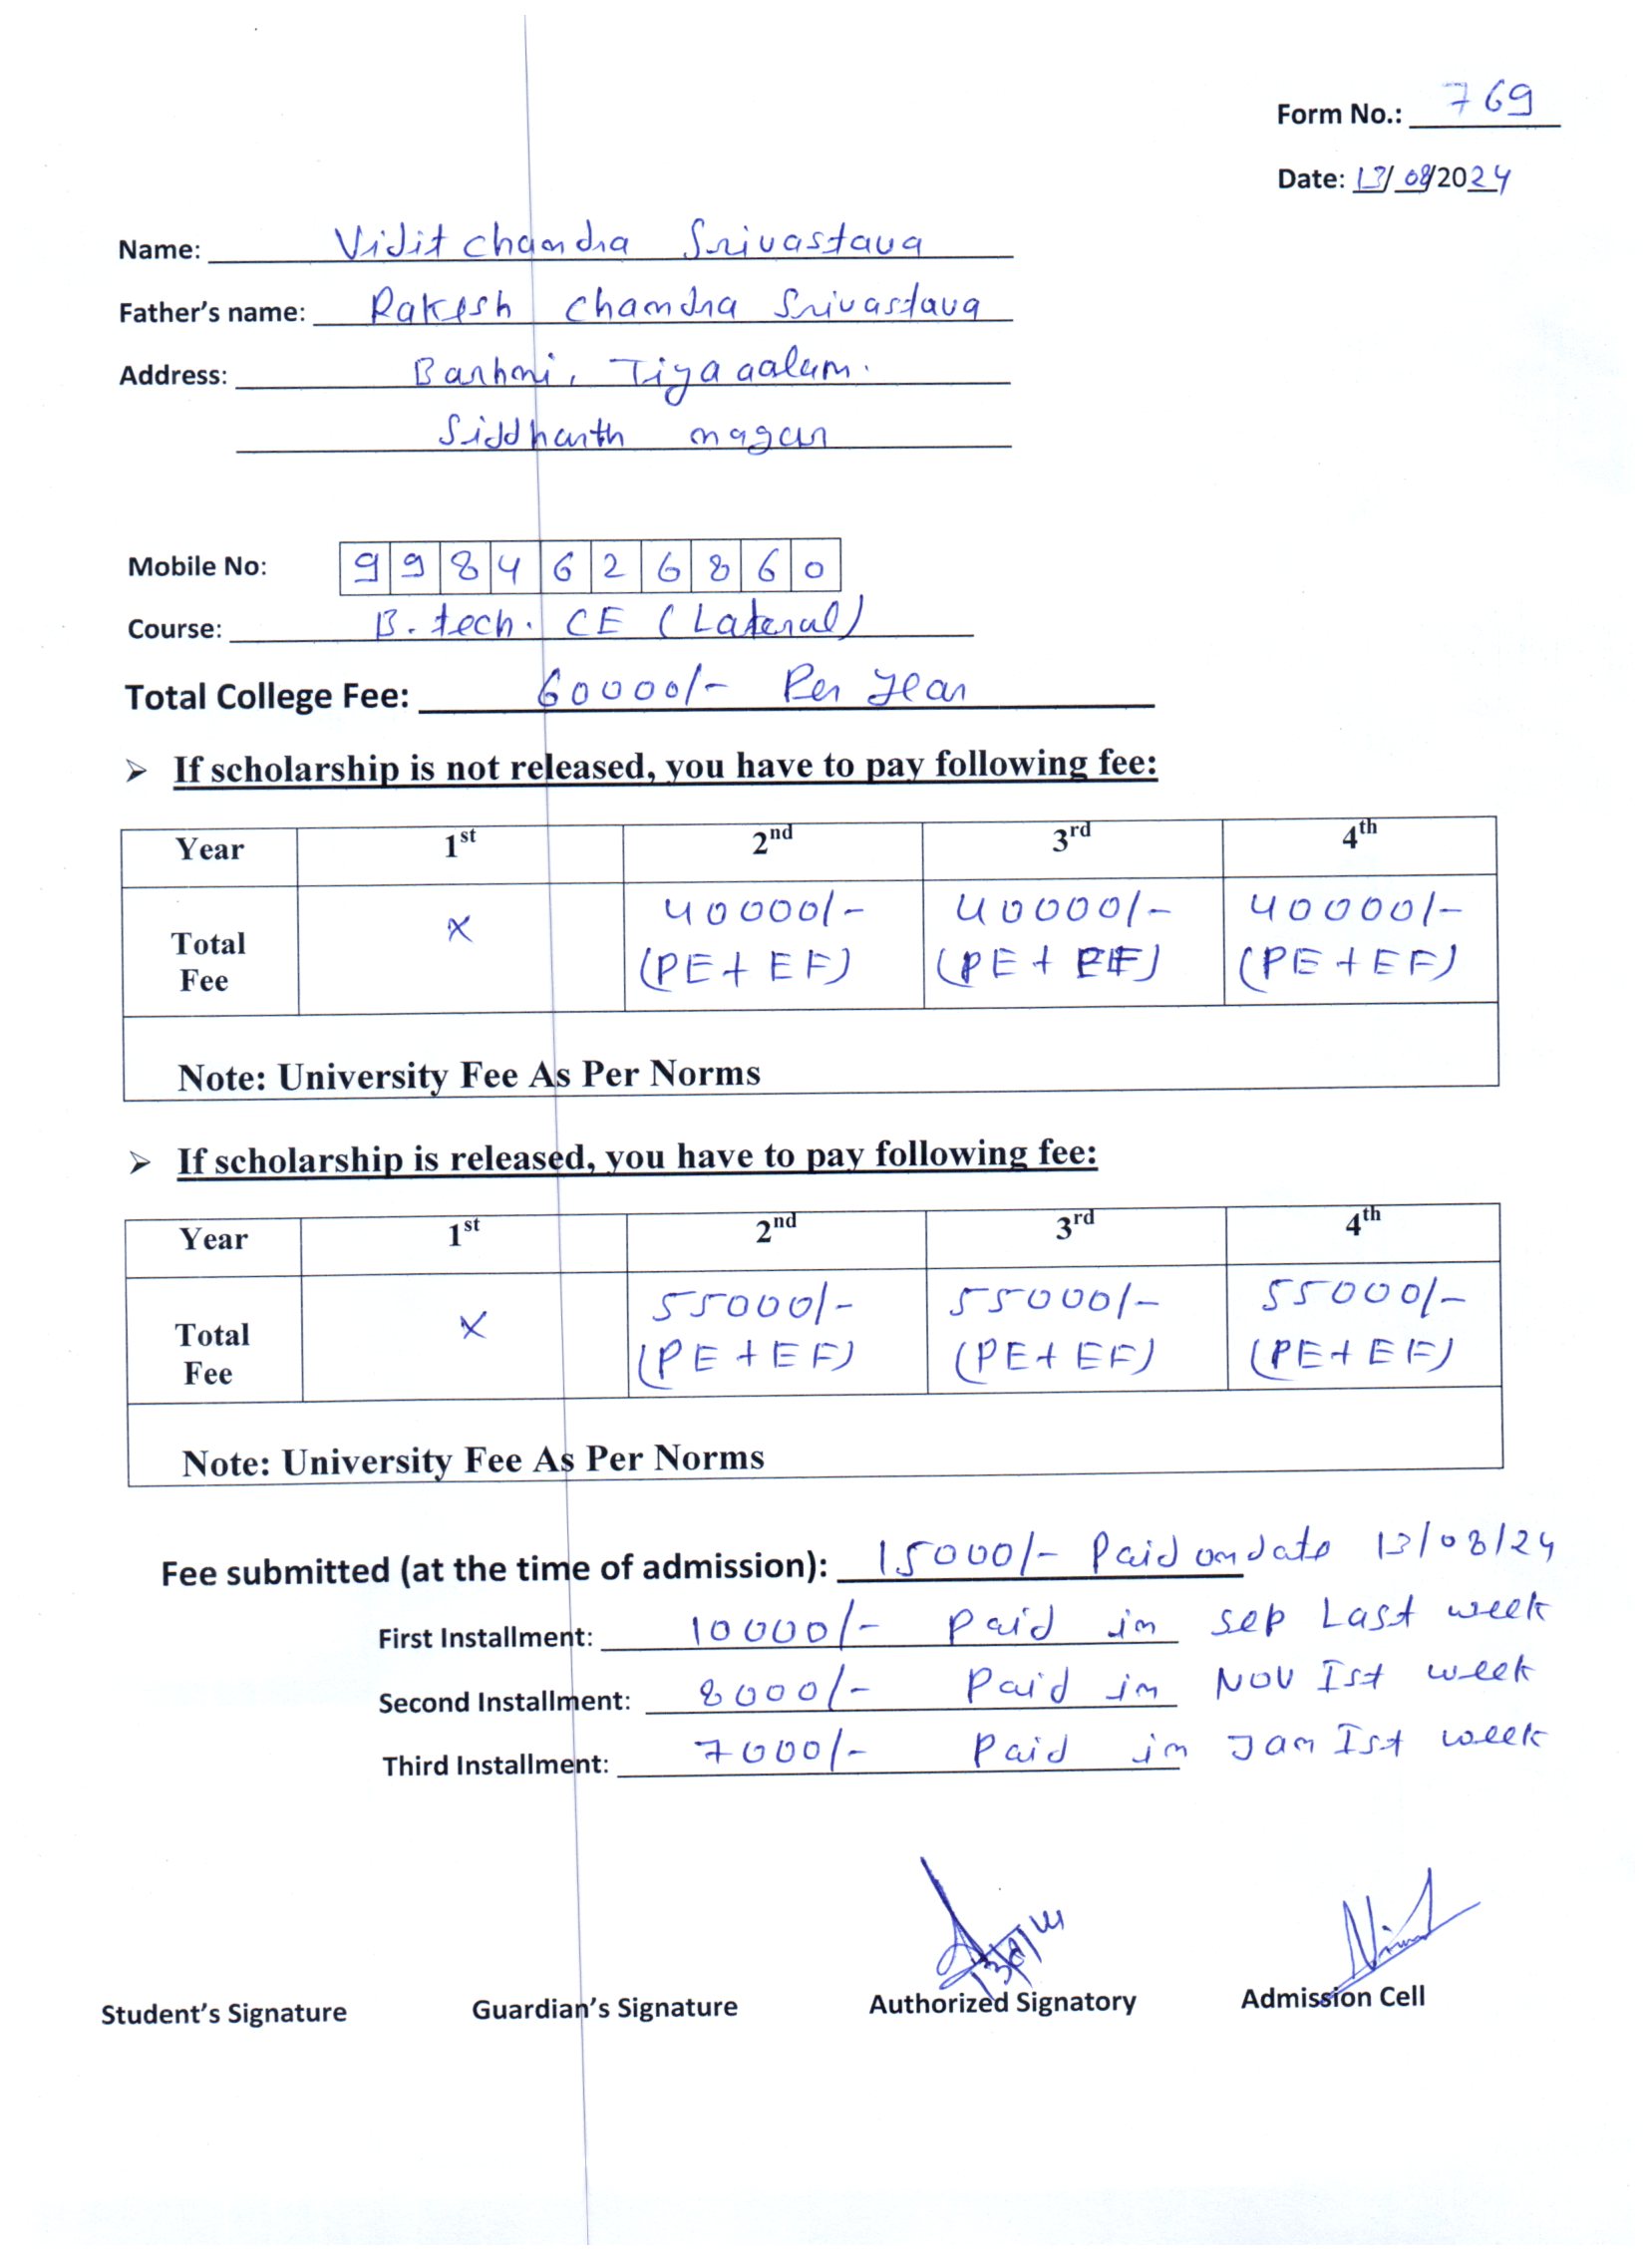 Form No.: 769
Date: 13/08/2024
Name: Vidit Chandra Srivastava
Father's name: Rakesh Chandra Srivastava
Address: Barhni, Tiyaaalam.
Siddharth nagar
Mobile No: 9984626860
Course: B.tech. CE (Lateral)
Total College Fee: 60000/- Per Year
➢ If scholarship is not released, you have to pay following fee:
Year 1st 2nd 3rd 4th
Total Fee x 40000/- (PE + EF) 40000/- (PE + EF) 40000/- (PE + EF)
Note: University Fee As Per Norms
➢ If scholarship is released, you have to pay following fee:
Year 1st 2nd 3rd 4th
Total Fee x 55000/- (PE + EF) 55000/- (PE + EF) 55000/- (PE + EF)
Note: University Fee As Per Norms
Fee submitted (at the time of admission): 15000/- Paid on date 13/08/24
First Installment: 10000/- Paid in sep Last week
Second Installment: 8000/- Paid in Nov Ist week
Third Installment: 7000/- Paid in Jan Ist week
Student's Signature Guardian's Signature Authorized Signatory Admission Cell